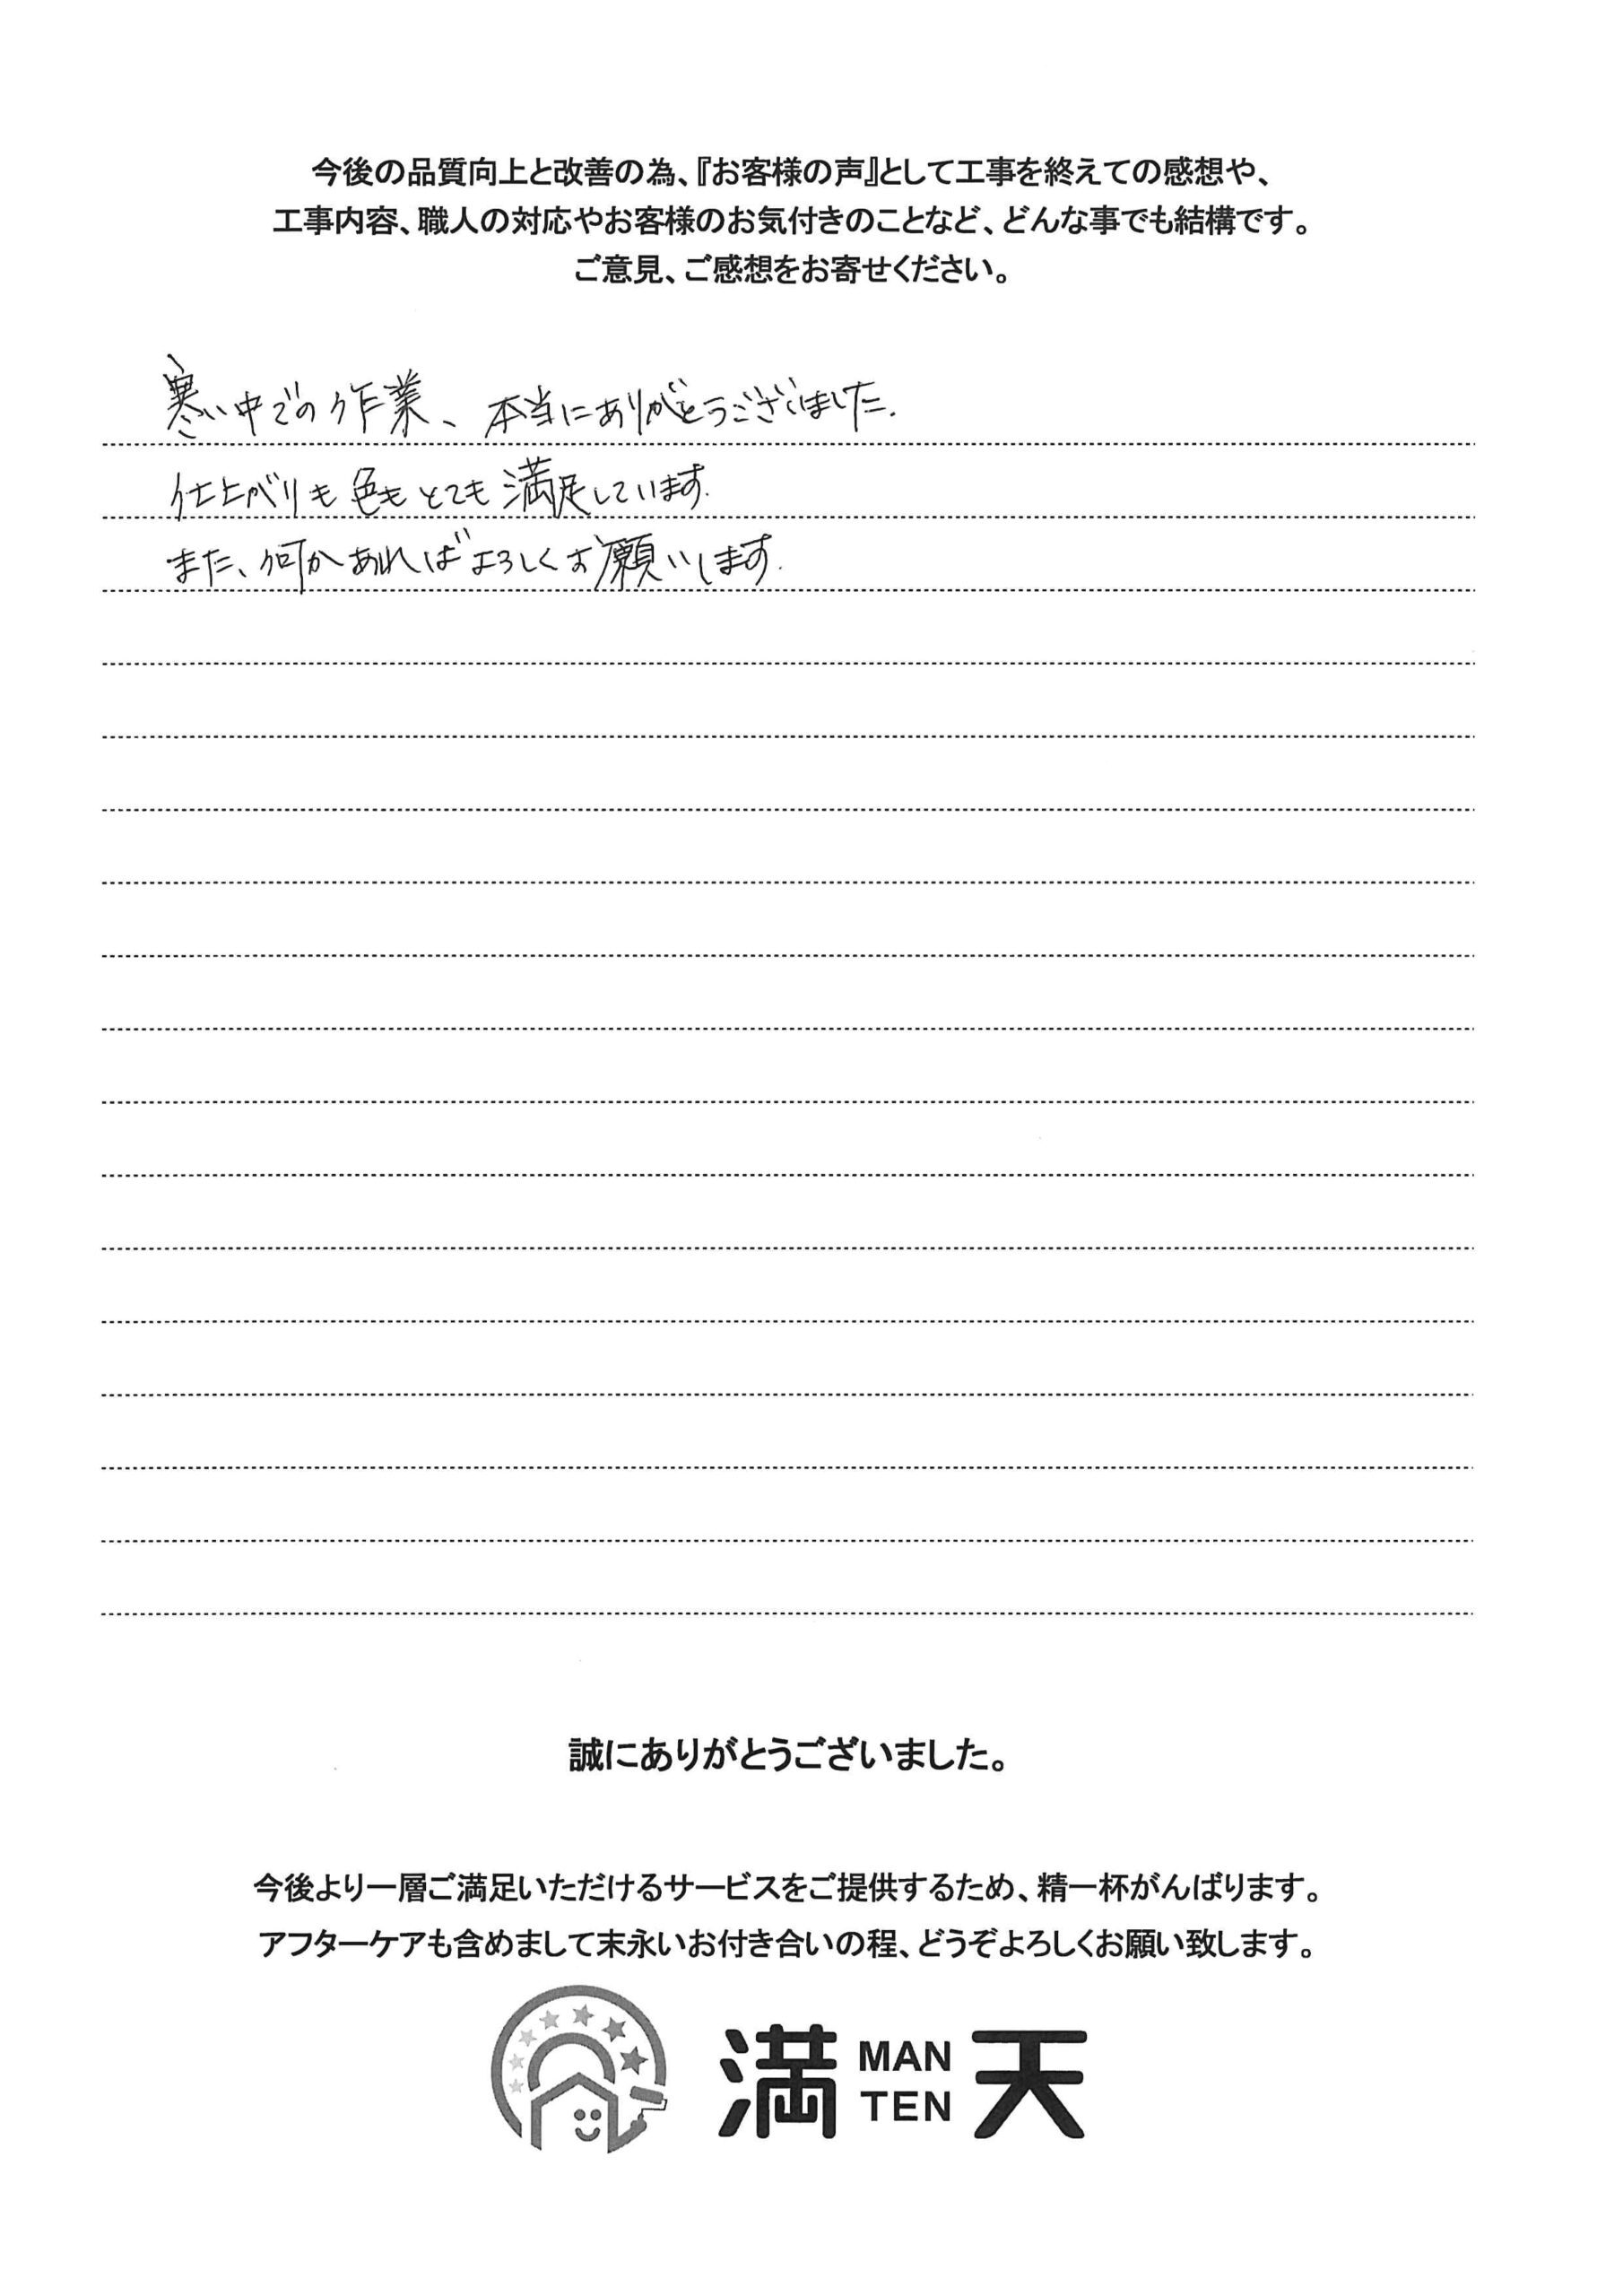 今後の品質向上と改善の為、『お客様の声』として工事を終えての感想や、
工事内容、職人の対応やお客様のお気付きのことなど、どんな事でも結構です。
ご意見、ご感想をお寄せください。
寒い中での作業、本当にありがとうございました.
仕上がりも色もとても満足しています.
また、何かあればよろしくお願いします.
誠にありがとうございました。
今後より一層ご満足いただけるサービスをご提供するため、精一杯がんばります。
アフターケアも含めまして末永いお付き合いの程、どうぞよろしくお願い致します。
満 MAN TEN 天